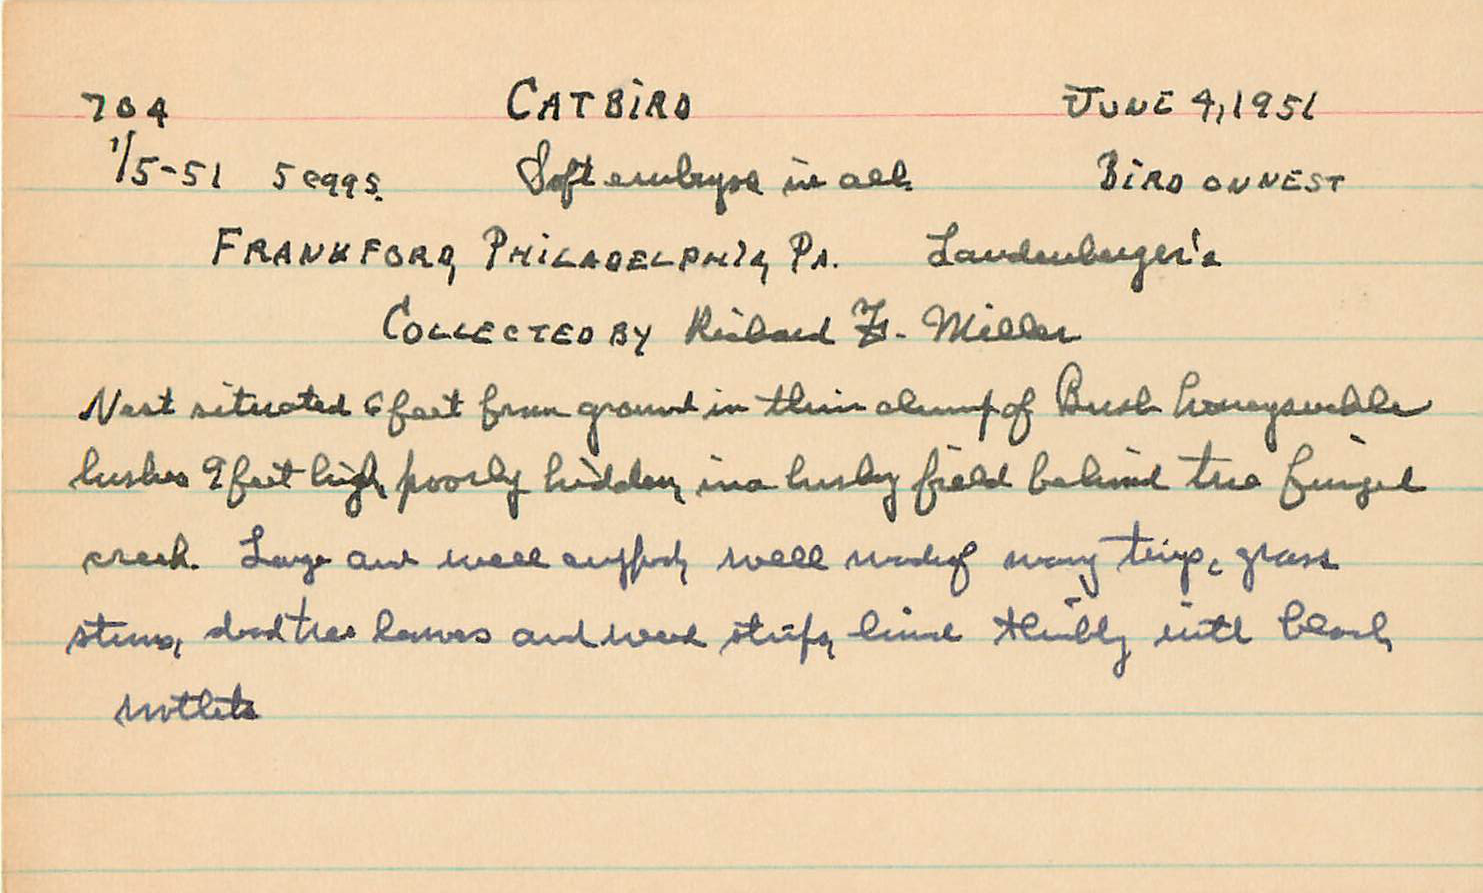 704 CATBIRD JUNE 4, 1951
1/5-51 5 eggs. Soft embryos in all. BIRD ON NEST
FRANKFORD, PHILADELPHIA, PA. Laudenberger's
COLLECTED BY Richard F. Miller
Nest situated 6 feet from ground in thin clump of Bush honeysuckle
bushes 9 feet high, poorly hidden, in a bushy field behind the
creek. Large and well well made of many twigs, grass
stems, dead tree leaves and weed strips, lined thickly with black
rootlets